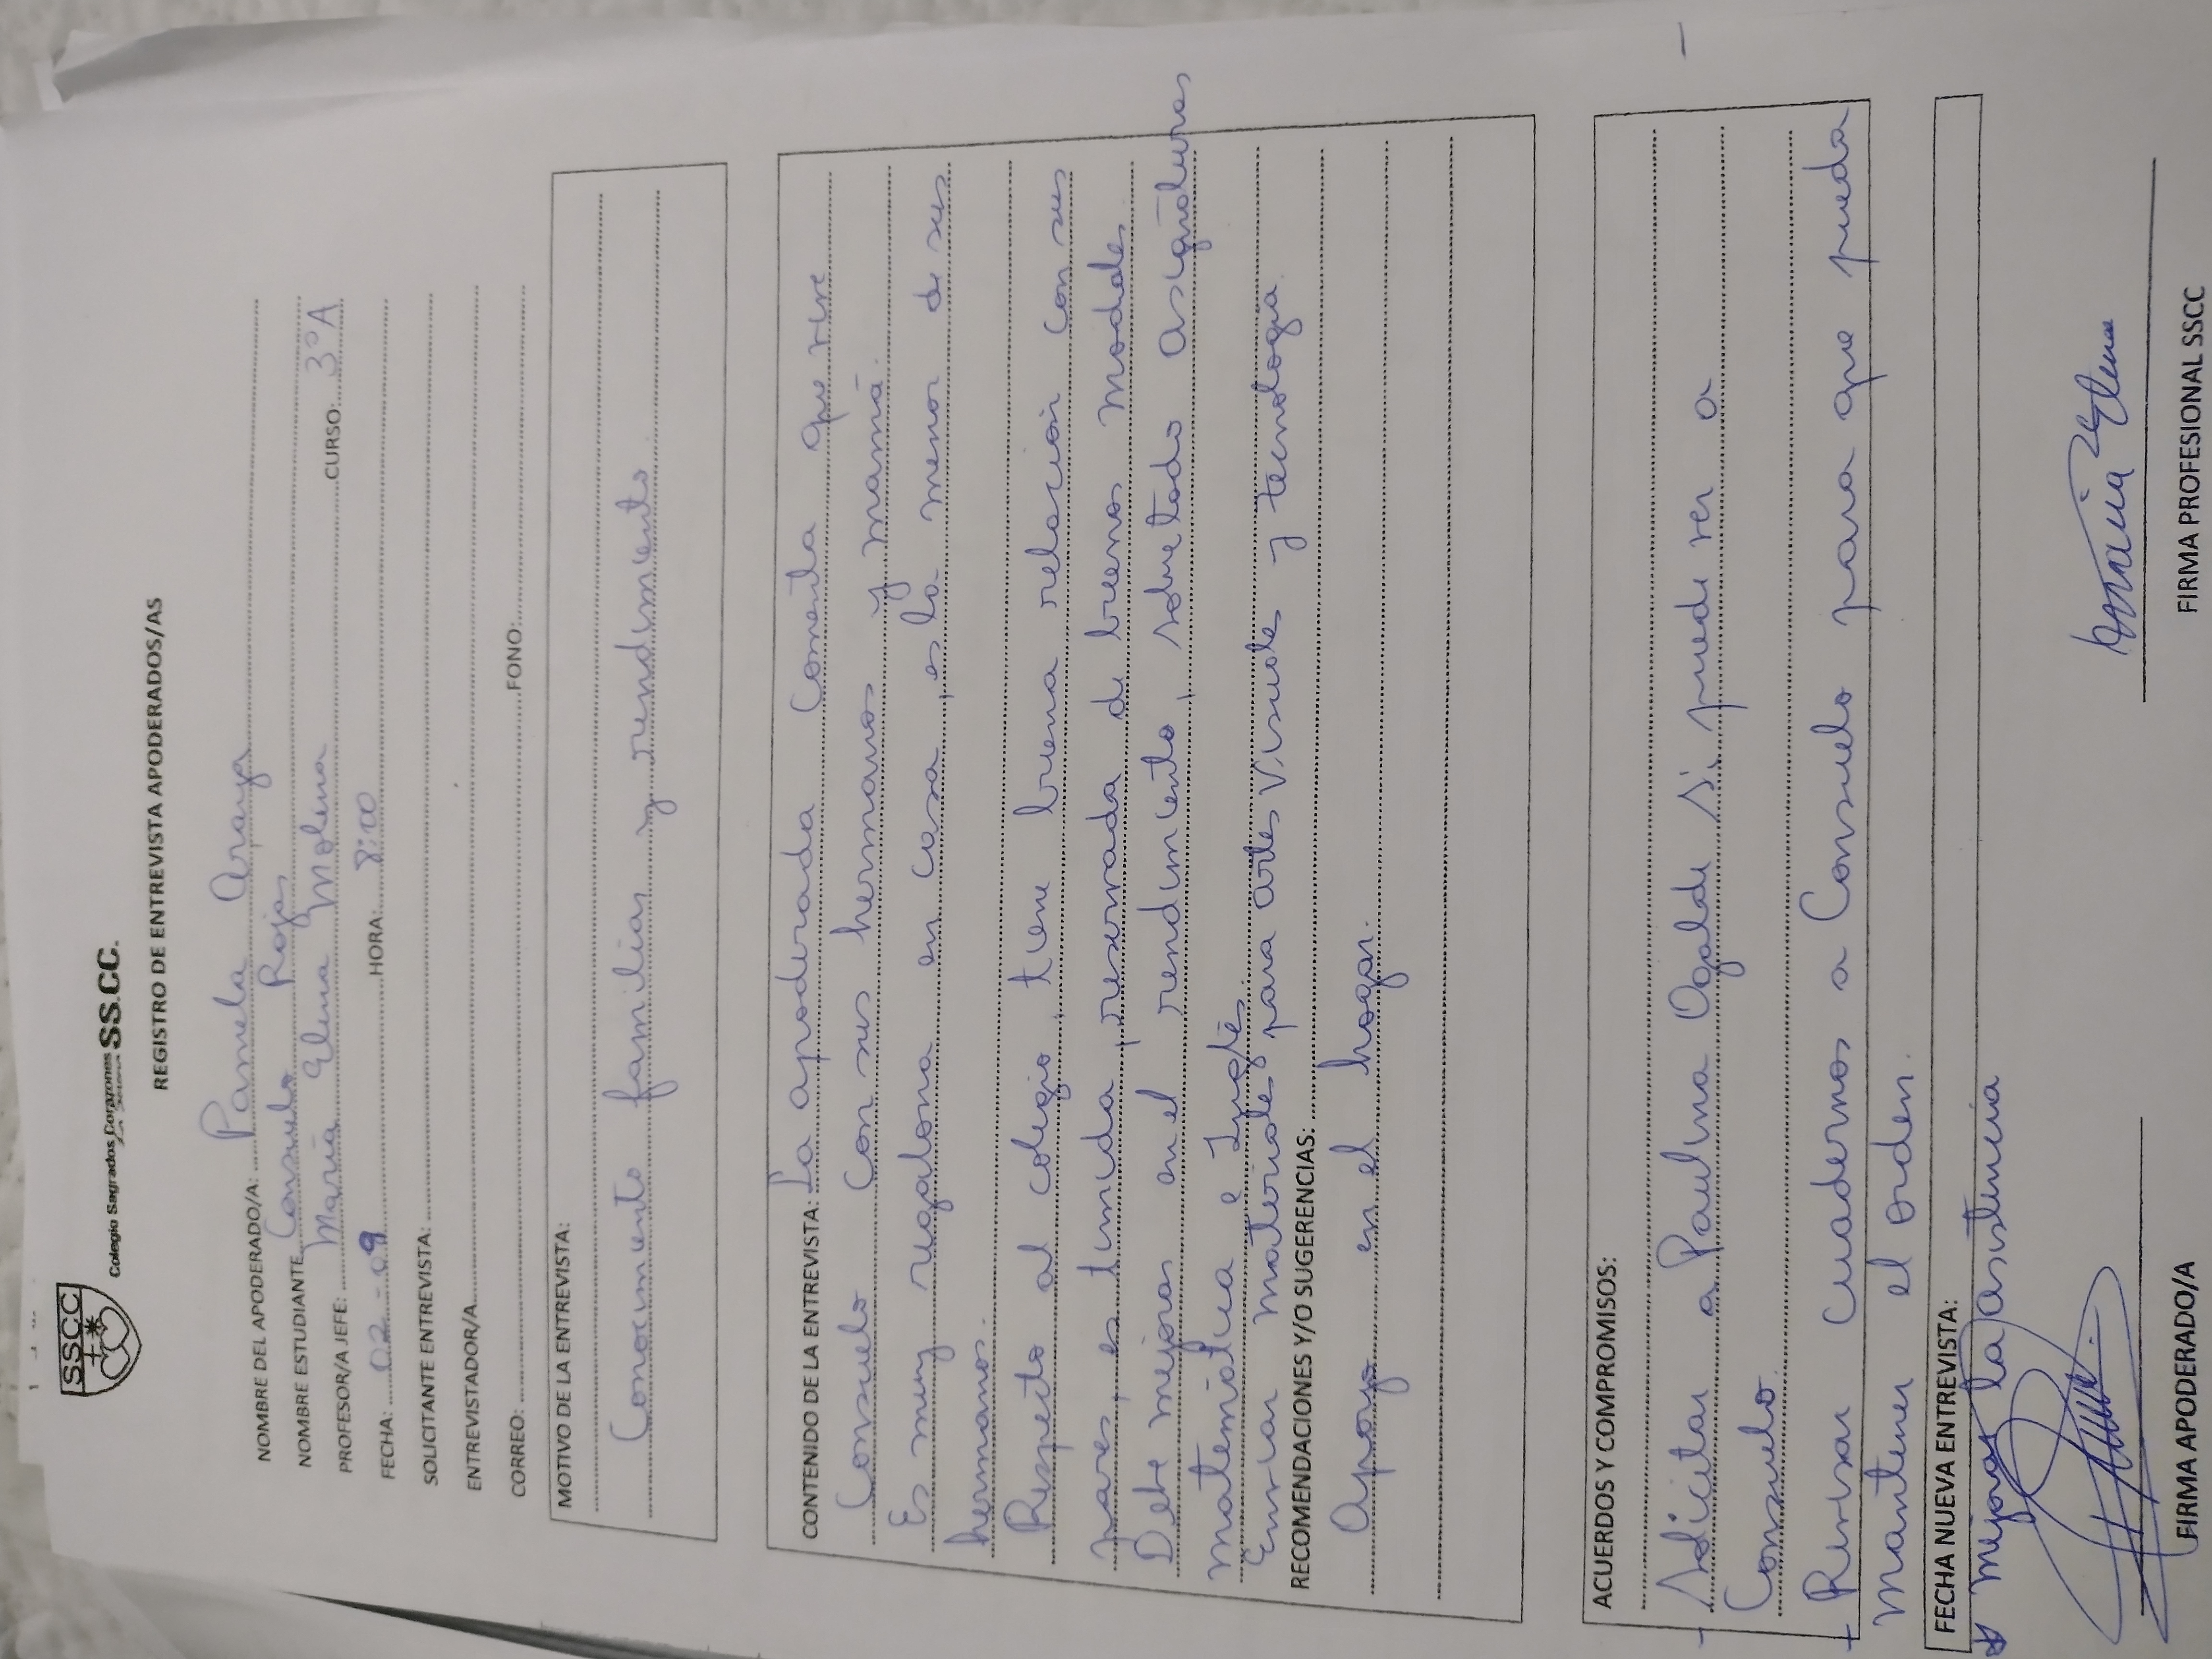 SSCC
Colegio Sagrados Corazones SS.CC.
REGISTRO DE ENTREVISTA APODERADOS/AS
NOMBRE DEL APODERADO/A: Pamela Araya
NOMBRE ESTUDIANTE Consuelo Rojas
PROFESOR/A JEFE: María Elena Molina CURSO: 3°A
FECHA: 02-09 HORA: 8:00
SOLICITANTE ENTREVISTA:
ENTREVISTADOR/A
CORREO: FONO:
MOTIVO DE LA ENTREVISTA:
Conocimiento familiar y rendimiento
CONTENIDO DE LA ENTREVISTA: La apoderada comenta que vive
Consuelo con sus hermanos y mamá.
Es muy regalona en casa, es la menor de sus
hermanos.
Respecto al colegio, tiene buena relación con sus
pares, es tímida, reservada de buenos modales
Debe mejorar en el rendimiento, sobretodo asignaturas
matemática e Inglés.
Enviar materiales para artes Visuales y tecnología
RECOMENDACIONES Y/O SUGERENCIAS:
Apoyo en el hogar.
ACUERDOS Y COMPROMISOS:
- Solicitar a Paulina Ogalde si puede ver a -
Consuelo
+ Revisar cuadernos a Consuelo para que pueda
mantener el orden.
FECHA NUEVA ENTREVISTA:
* mejorar la asistencia
María Elena
FIRMA APODERADO/A FIRMA PROFESIONAL SSCC